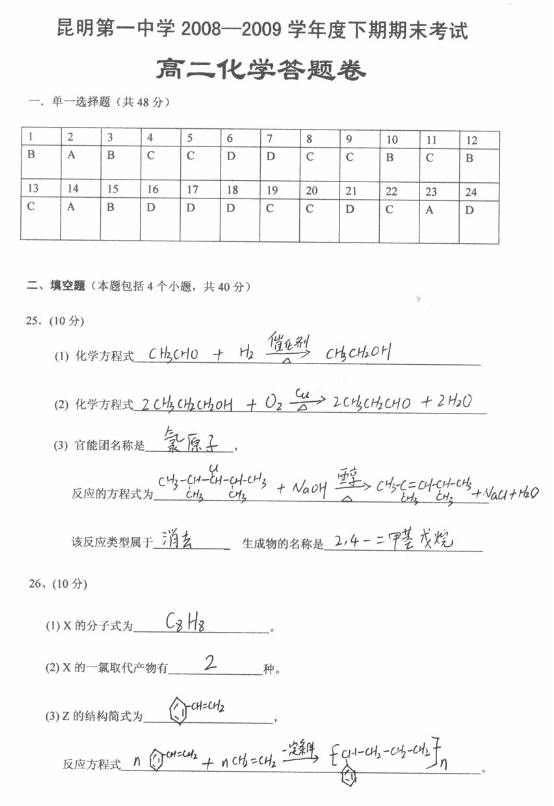 昆明第一中学 2008—2009 学年度下期期末考试
高二化学答题卷
一．单一选择题（共 48 分）
1 2 3 4 5 6 7 8 9 10 11 12
B A B C C D D C C B C B
13 14 15 16 17 18 19 20 21 22 23 24
C A B D D D C C D C A D
二、填空题（本题包括 4 个小题，共 40 分）
25．(10 分)
(1) 化学方程式 CH3CHO + H2 催化剂 △ → CH3CH2OH
(2) 化学方程式 2CH3CH2CH2OH + O2 Cu △ → 2CH3CH2CHO + 2H2O
(3) 官能团名称是 氯原子 ，
Cl
反应的方程式为 CH3-CH-CH-CH-CH3 + NaOH 醇 △ → CH3-C=CH-CH-CH3 + NaCl + H2O
CH3 CH3 CH3 CH3
该反应类型属于 消去 生成物的名称是 2,4-二甲基戊烷
26、(10 分)
(1) X 的分子式为 C8H8 。
(2) X 的一氯取代产物有 2 种。
(3) Z 的结构简式为 CH=CH2 ，
反应方程式 n CH=CH2 + n CH2=CH2 一定条件 → [CH-CH2-CH2-CH2]n 。